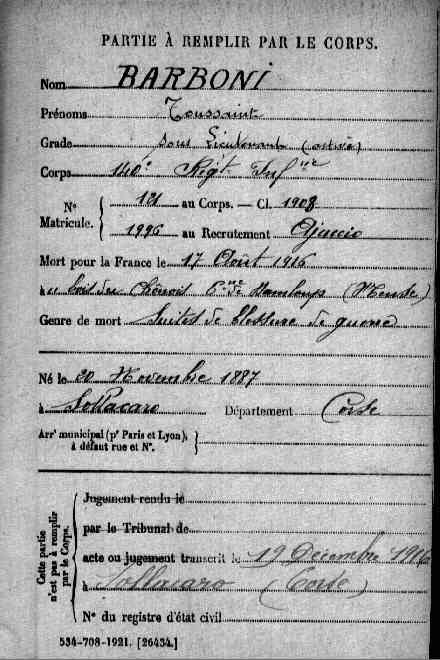 PARTIE À REMPLIR PAR LE CORPS.
Nom BARBONI
Prénoms Toussaint
Grade Sous Lieutenant (active)
Corps 140e Régt Infie
No Matricule. 121 au Corps. — Cl. 1908
1996 au Recrutement Ajaccio
Mort pour la France le 17 Août 1916
au bois du Chênois Cne de Damloup (Meuse)
Genre de mort Suites de blessure de guerre
Né le 20 Novembre 1887
à Sollacaro Département Corse
Arrt municipal (pr Paris et Lyon), à défaut rue et No.
Cette partie n'est pas à remplir par le Corps.
Jugement rendu le
par le Tribunal de
acte ou jugement transcrit le 19 Décembre 1916
à Sollacaro (Corse)
No du registre d'état civil
534-708-1921. [26434.]